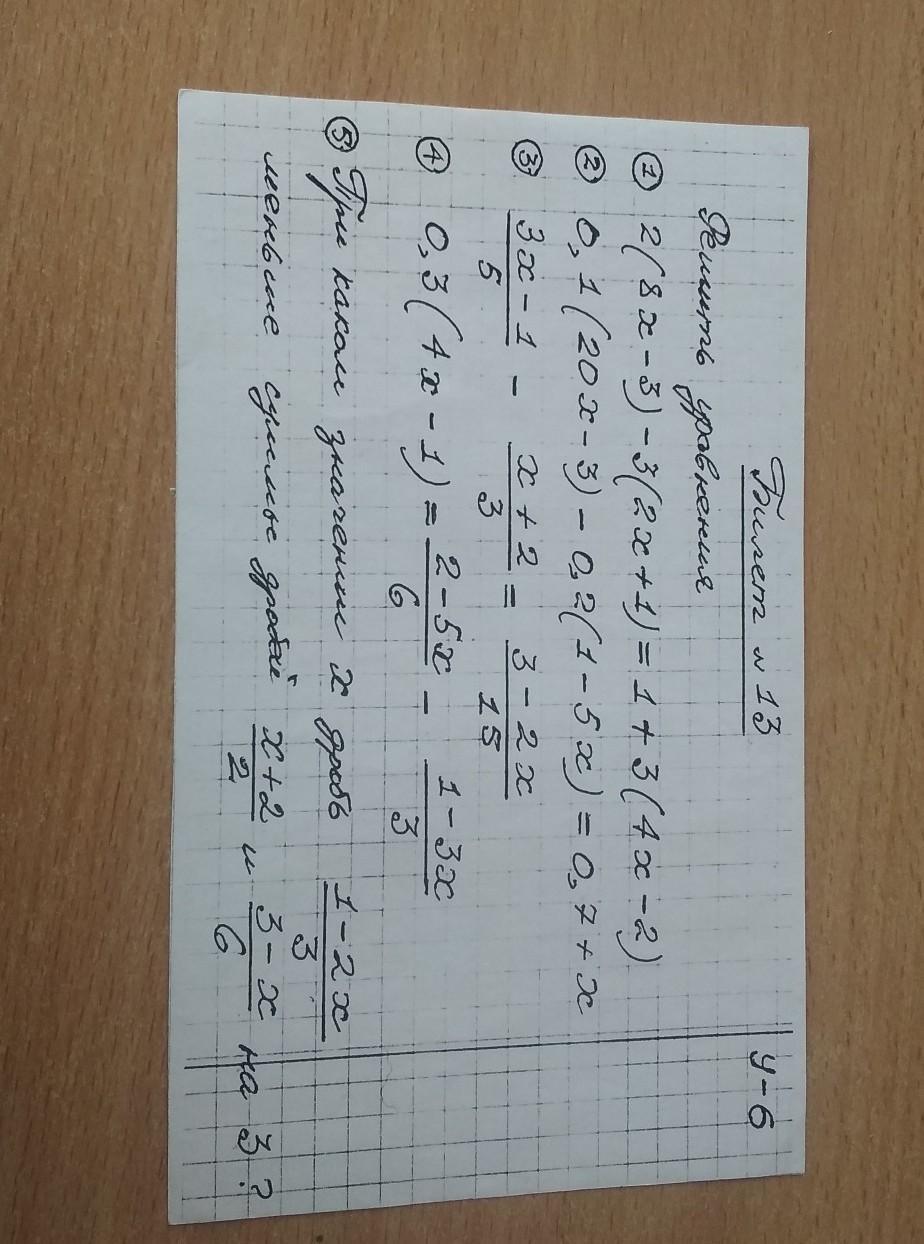 Билет №13
У-6
Решить уравнения
① 2(8x-3)-3(2x+1)=1+3(4x-2)
② 0,1(20x-3)-0,2(1-5x)=0,7+x
③ (3x-1)/5 - (x+2)/3 = (3-2x)/15
④ 0,3(4x-1) = (2-5x)/6 - (1-3x)/3
⑤ При каком значении x дробь (1-2x)/3
меньше суммы дробей (x+2)/2 и (3-x)/6 на 3?